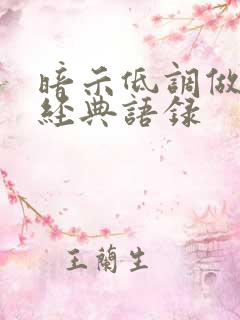 暗示低調做
經典語錄
王蘭生